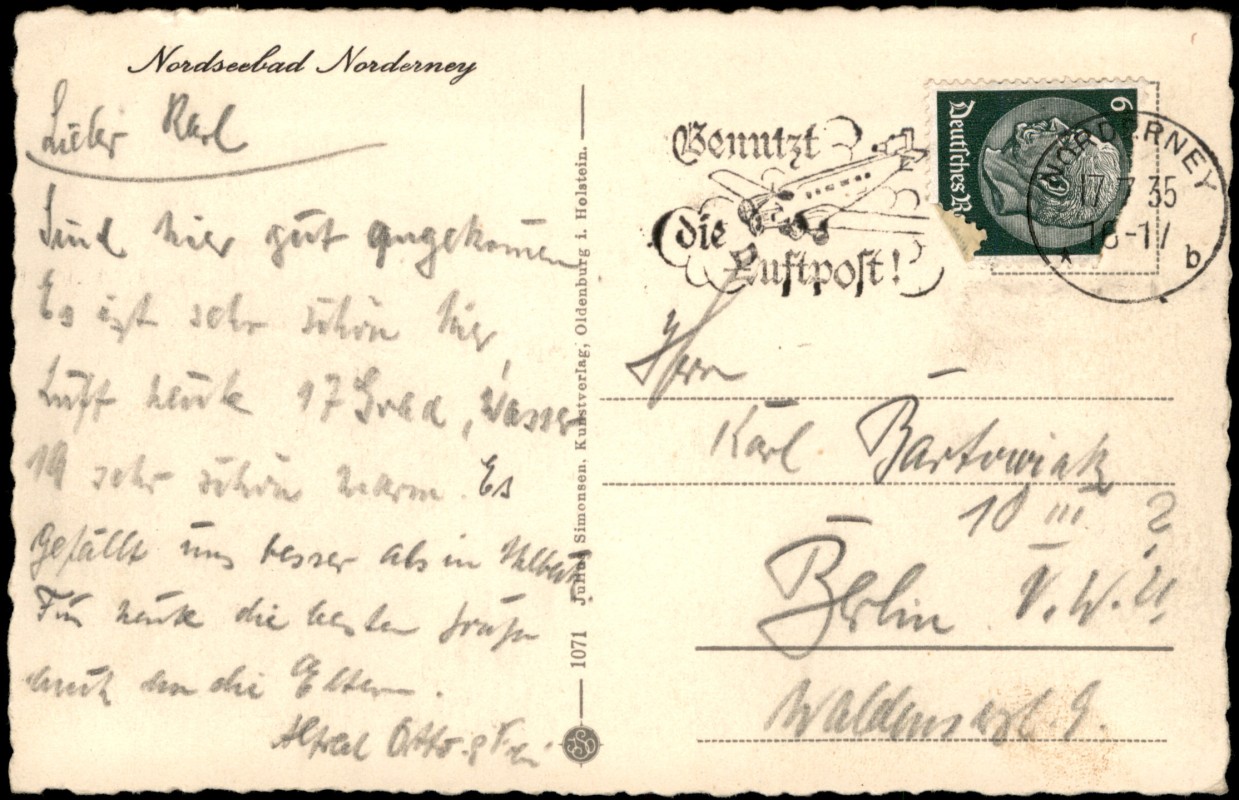 Nordseebad Norderney
Lieber Karl
Sind hier gut angekommen
Es ist sehr schön hier,
Luft heute 17 Grad, Wasser
19 sehr schön warm. Es
gefällt uns besser als in
Für heute die besten Grüße
auch an die Eltern.
Alfred Otto
1071 Julius Simonsen, Kunstverlag, Oldenburg i. Holstein.
Benutzt
die
Luftpost!
6
Deutsches Re
NORDERNEY
17.7.35
16-17
b
Herrn
Karl Bartowiak
10 III
Berlin